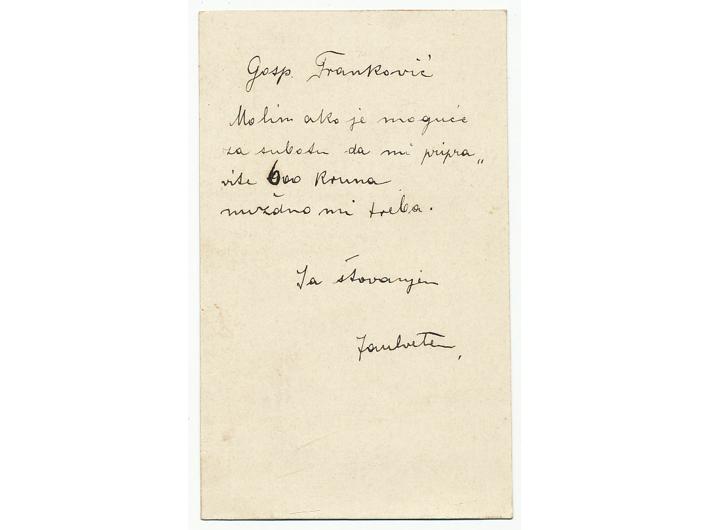 Gosp. Franković
Molim ako je moguće
za subotu da mi pripra„
vite 600 kruna
nuždno mi treba.
Sa štovanjem